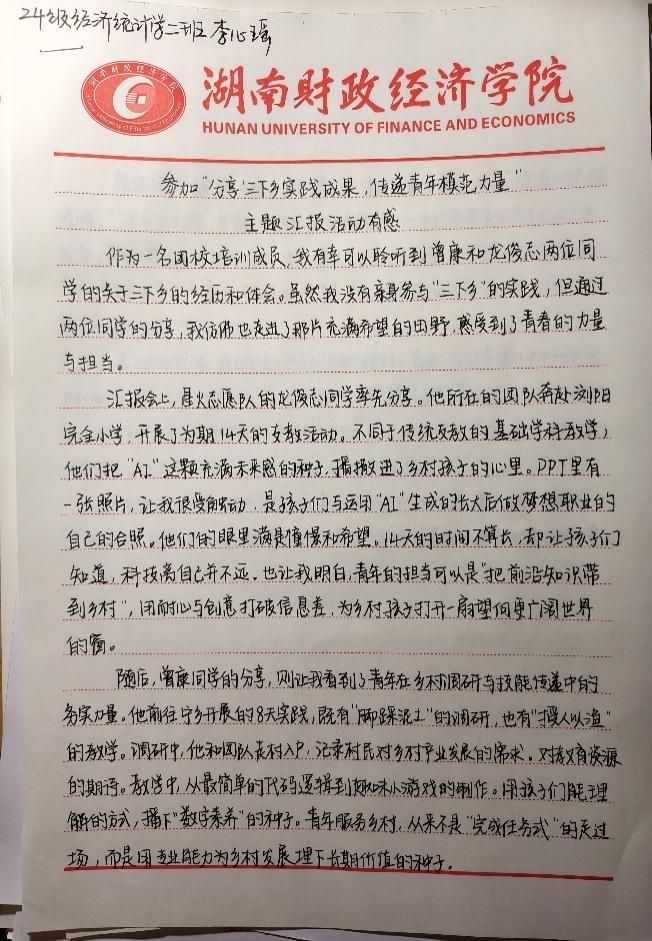 24级经济统计学二班 李心瑶
湖南财政经济学院
HUNAN UNIVERSITY OF FINANCE AND ECONOMICS
参加“分享‘三下乡’实践成果,传递青年模范力量”
主题汇报活动有感
作为一名团校培训成员,我有幸可以聆听到曾康和龙俊志两位同
学的关于三下乡的经历和体会。虽然我没有亲身参与“三下乡”的实践,但通过
两位同学的分享,我仿佛也走进了那片充满希望的田野,感受到了青春的力量
与担当。
汇报会上,星火志愿队的龙俊志同学率先分享。他所在的团队奔赴浏阳
完全小学,开展了为期14天的支教活动。不同于传统支教的基础学科教学,
他们把“AI”这颗充满未来感的种子,播撒进了乡村孩子的心里。PPT里有
一张照片,让我很受触动,是孩子们与运用“AI”生成的长大后做梦想职业的
自己的合照。他们的眼里满是憧憬和希望。14天的时间不算长,却让孩子们
知道,科技离自己并不远。也让我明白,青年的担当可以是“把前沿知识带
到乡村”,用耐心与创意打破信息差,为乡村孩子打开一扇望向更广阔世界
的窗。
随后,曾康同学的分享,则让我看到了青年在乡村调研与技能传递中的
务实力量。他前往宁乡开展的8天实践,既有“脚踩泥土”的调研,也有“授人以渔”
的教学。调研中,他和团队走村入户,记录村民对乡村产业发展的需求、对教育资源
的期待。教学中,从最简单的代码逻辑到趣味小游戏的制作。用孩子们能理
解的方式,播下“数字素养”的种子。青年服务乡村,从来不是“完成任务式”的走过
场,而是用专业能力为乡村发展埋下长期价值的种子。